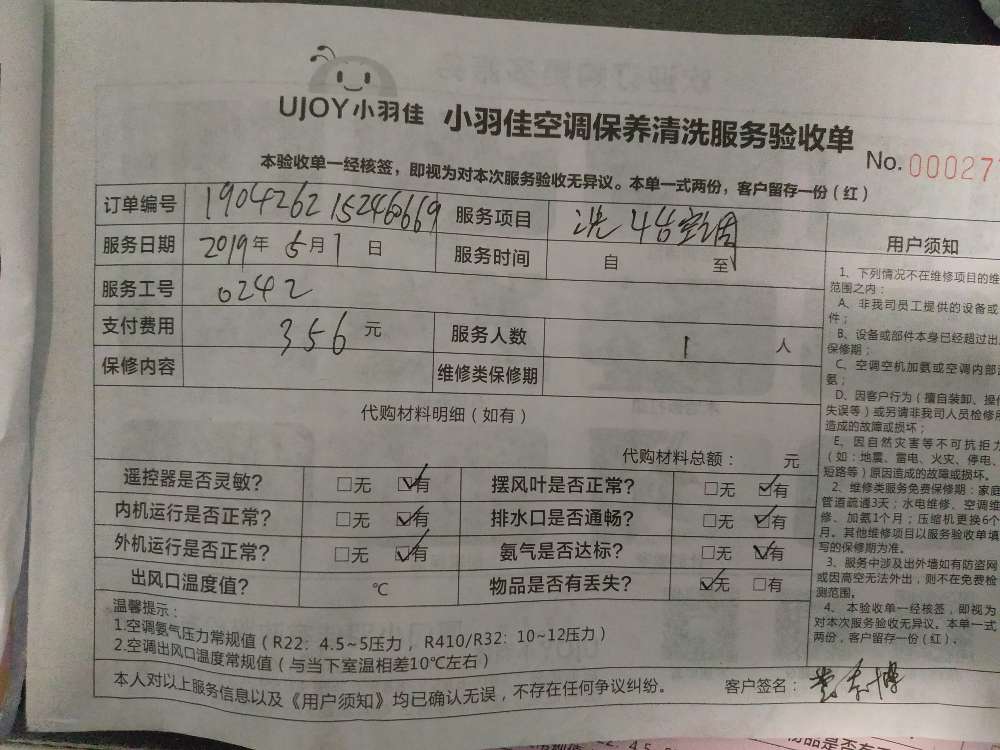 UJOY小羽佳 小羽佳空调保养清洗服务验收单
No. 00027
本验收单一经核签，即视为对本次服务验收无异议。本单一式两份，客户留存一份（红）
订单编号 服务项目 洗4台空调
服务日期 2019年5月1日 服务时间 自 至
服务工号 0242
支付费用 356元 服务人数 1人
保修内容 维修类保修期
代购材料明细（如有）
代购材料总额： 元
遥控器是否灵敏？ □无 ☑有 摆风叶是否正常？ □无 ☑有
内机运行是否正常？ □无 ☑有 排水口是否通畅？ □无 ☑有
外机运行是否正常？ □无 ☑有 氨气是否达标？ □无 ☑有
出风口温度值？ ℃ 物品是否有丢失？ ☑无 □有
温馨提示：
1.空调氨气压力常规值（R22：4.5~5压力，R410/R32：10~12压力）
2.空调出风口温度常规值（与当下室温相差10℃左右）
本人对以上服务信息以及《用户须知》均已确认无误，不存在任何争议纠纷。 客户签名：
用户须知
1、下列情况不在维修项目的维
范围之内：
A、非我司员工提供的设备或
件；
B、设备或部件本身已经超过出
保修期；
C、空调空机加氨或空调内部
氨；
D、因客户行为（擅自装卸、操
失误等）或另请非我司人员检修
造成的故障或损坏；
E、因自然灾害等不可抗拒力
（如：地震、雷电、火灾、停电、
短路等）原因造成的故障或损坏。
2、维修类服务免费保修期：家庭
管道疏通3天；水电维修、空调维
修、加氨1个月；压缩机更换6个
月。其他维修项目以服务验收单填
写的保修期为准。
3、服务中涉及出外墙如有防盗网
或因高空无法外出，则不在免费检
测范围。
4、本验收单一经核签，即视为
对本次服务验收无异议。本单一式
两份，客户留存一份（红）。